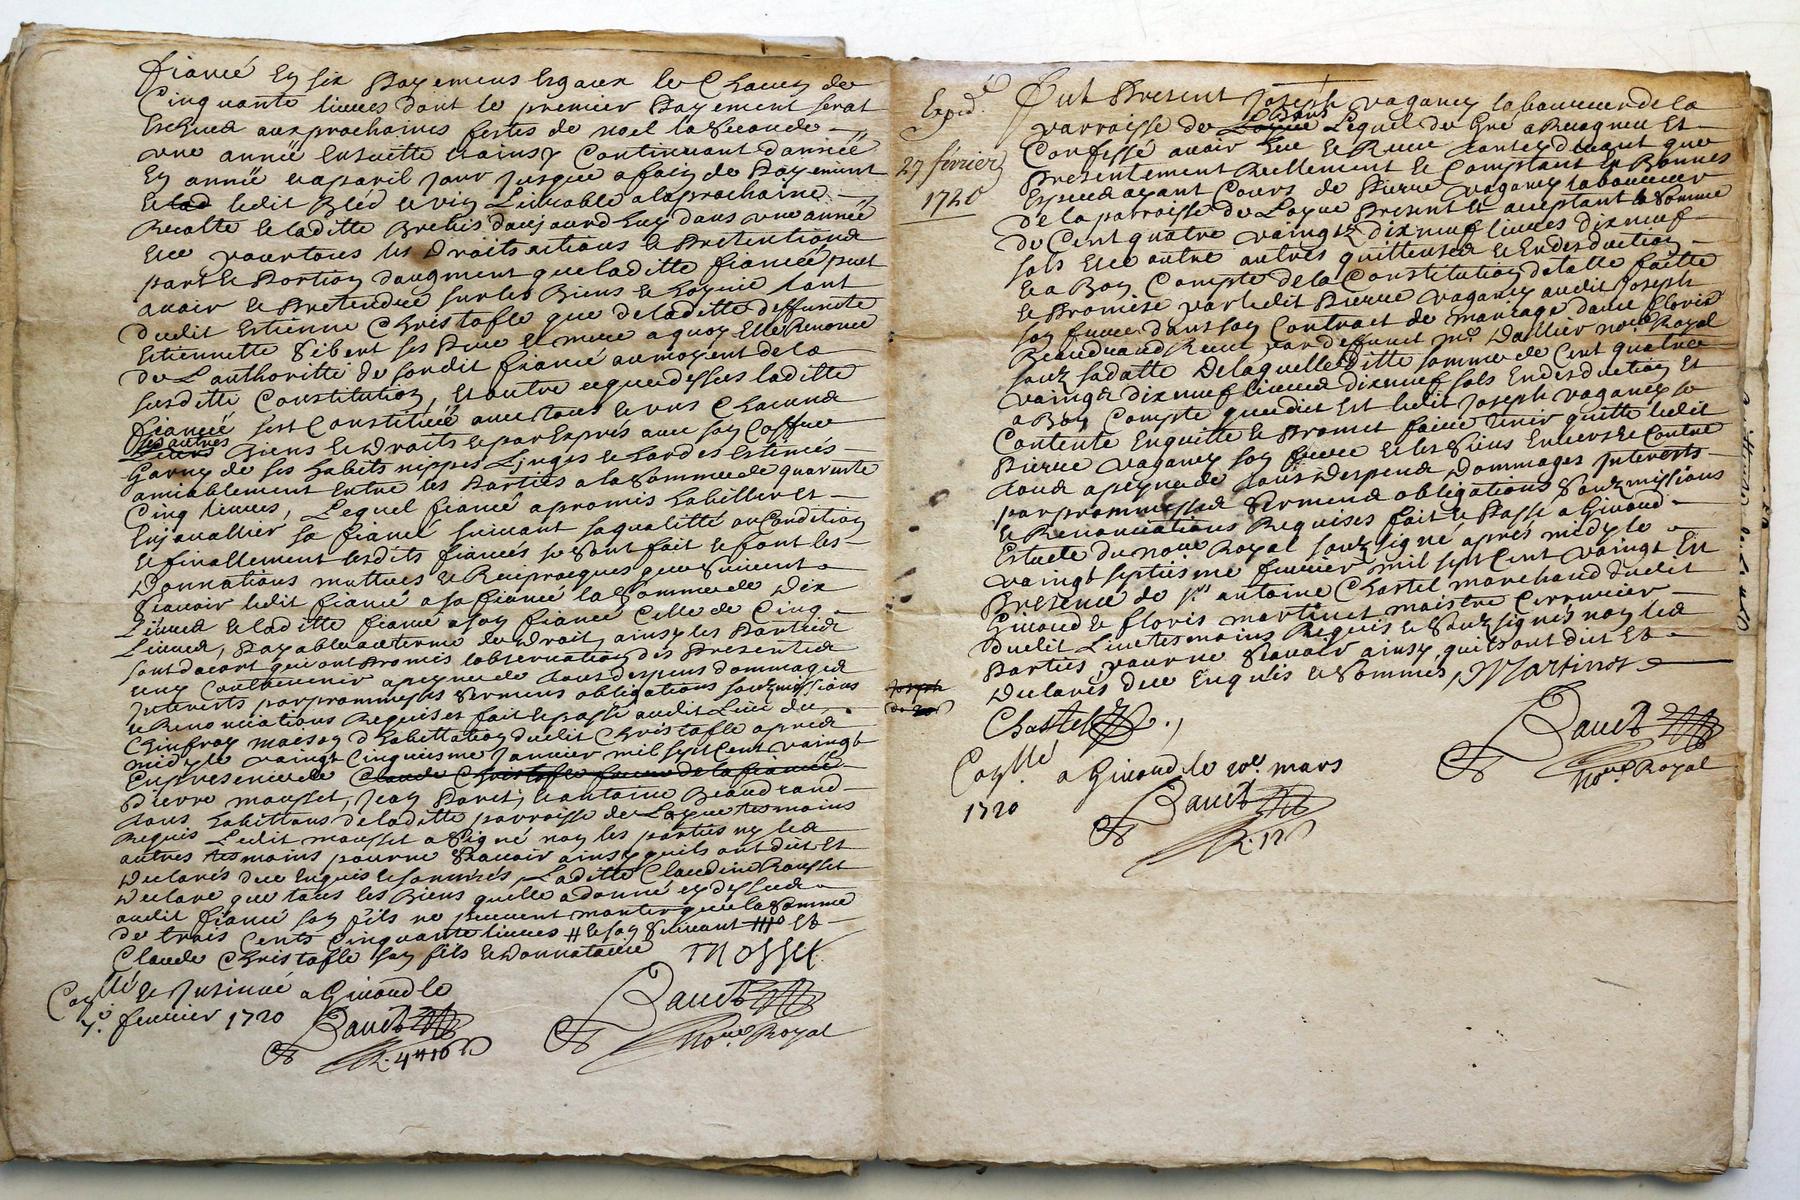 fiancé En six Payemens Esgaux le Chacun de
Cinquante liures dont le premier Payement serat
Escheud aux prochaines festes de noel la Seconde
vne année Ensuitte et ainsy Continuant dannée
En année et apareil jour jusques a fain de Payement
ledit Bled et vin a la prochaine
Recolte et laditte Brebis daujourdhuy dans vne année
Et ce pour tous les Droits actions et Pretentions
part et Portion daugment que laditte fiancée peut
auoir et Pretendre sur les Biens et hoyrie tant
dudit Estienne Christofle que de laditte deffuncte
Estiennette Sibert ses Pere et mere a quoy Elle Renonce
de L'authoritte de sondit fiancé au moyent de la
susditte Constitution, Et outre ce que dessus laditte
fiancée sest Constituée auec tous et vns Chacuns
ses autres Biens et Droits et par Exprés auec son Coffre
Garny de ses habits nippes Linges et hardes Estimés
amiablement Entre les Parties a la Somme de quarante
Cinq liures, Lequel fiancé a promis habillier et
Enjouallier sa fiancé suiuant sa qualitté ou Condition
et finallement lesdits fiancés se sont fait et font les
Donnations mutues et Reciprocques que Suiuent
Scauoir ledit fiancé a sa fiancée la Somme de Dix
Liures et laditte fiancée a son fiancé Celle de Cinq
Liures, Payable au terme de Droit, ainsy les Parties
sont dacort qui ont Promis lobseruation des Presentes
Contreuenir a peyne de tous despens dommages
Interests par prommesses Sermens obligations soubzmissions
et Renonciations Requises fait et passé audit Lieu du
Chinfray maison dhabittation dudit Christofle apres
midy le vaingt Cinquiesme Januier mil sept Cent vaingt
En presence de Claude Christofle frere de la fiancée
Pierre mousset, Jean Poret, et antoine Beaudrand
tous habittans de laditte parroisse de Layue tesmoins
Requis Ledit mousset a Signé non les parties ny les
autres tesmoins pour ne Scauoir ainsy quils ont dict Et
Declarés deüe Enquis et sommés, Laditte Claudine Rousset
Declare que tous les Biens quelle a donné cy dessus
audit fiancé son fils ne peuuent monter que la Somme
de trois Cents Cinquante liures et
Claude Christofle son fils et donnataire
Mosset
Conllé et Insinué a Giuord le
7e feurier 1720
Bauet
Bauet
Nore Royal
Expéd.é
27 février
1720
Fut Present Joseph vaganey laboureur de la
parroisse de Lequel de Gré a Recogneu Et
Confessé auoir heu et Receu tantes deuant que
Presentement Reellement et Comptant En Bonnes
Especes ayant Cours de Pierre vaganey laboureur
de la parroisse de Layue Present Et acceptant la Somme
de Cent quatre vaingtz dix neuf liures dix neuf
sols Et ce outre autres quittences et En desduction
et a Bon Compte de la Constitution de talle faitte
et Promise par ledit Pierre vaganey audit Joseph
son frere dans son Contract de mariage
Receu par deffunct Me Royal
soubz sa datte De laquelle ditte somme de Cent quattre
vaingts dix neuf liures dix neuf sols En desduction Et
a Bon Compte que dict Est ledit Joseph vaganey se
Contente En quitte et Promet faire tenir quitte ledit
Pierre vaganey son frere et les Siens Enuers et Contre
tous a peyne de tous despens, Dommages Interests
par prommesses Sermens obligations Soubzmissions
et Renonciations Requises fait et Passé a Giuord
Estude du nore Royal soubzsigné aprés midy le
vaingt septiesme feurier mil sept Cent vaingt En
Presence de sr antoine Chastel marchand dudit
Giuord et floris martinet maistre Cerrurier
dudit Lieu tesmoins Requis et Soubzsignés non les
Parties pour ne Scauoir ainsy quils ont dict Et
Declarés deüe Enquis et Sommés, Martinet
Chastel
Bauet
Nore Royal
Conllé a Giuord le 20e mars
1720
Bauet